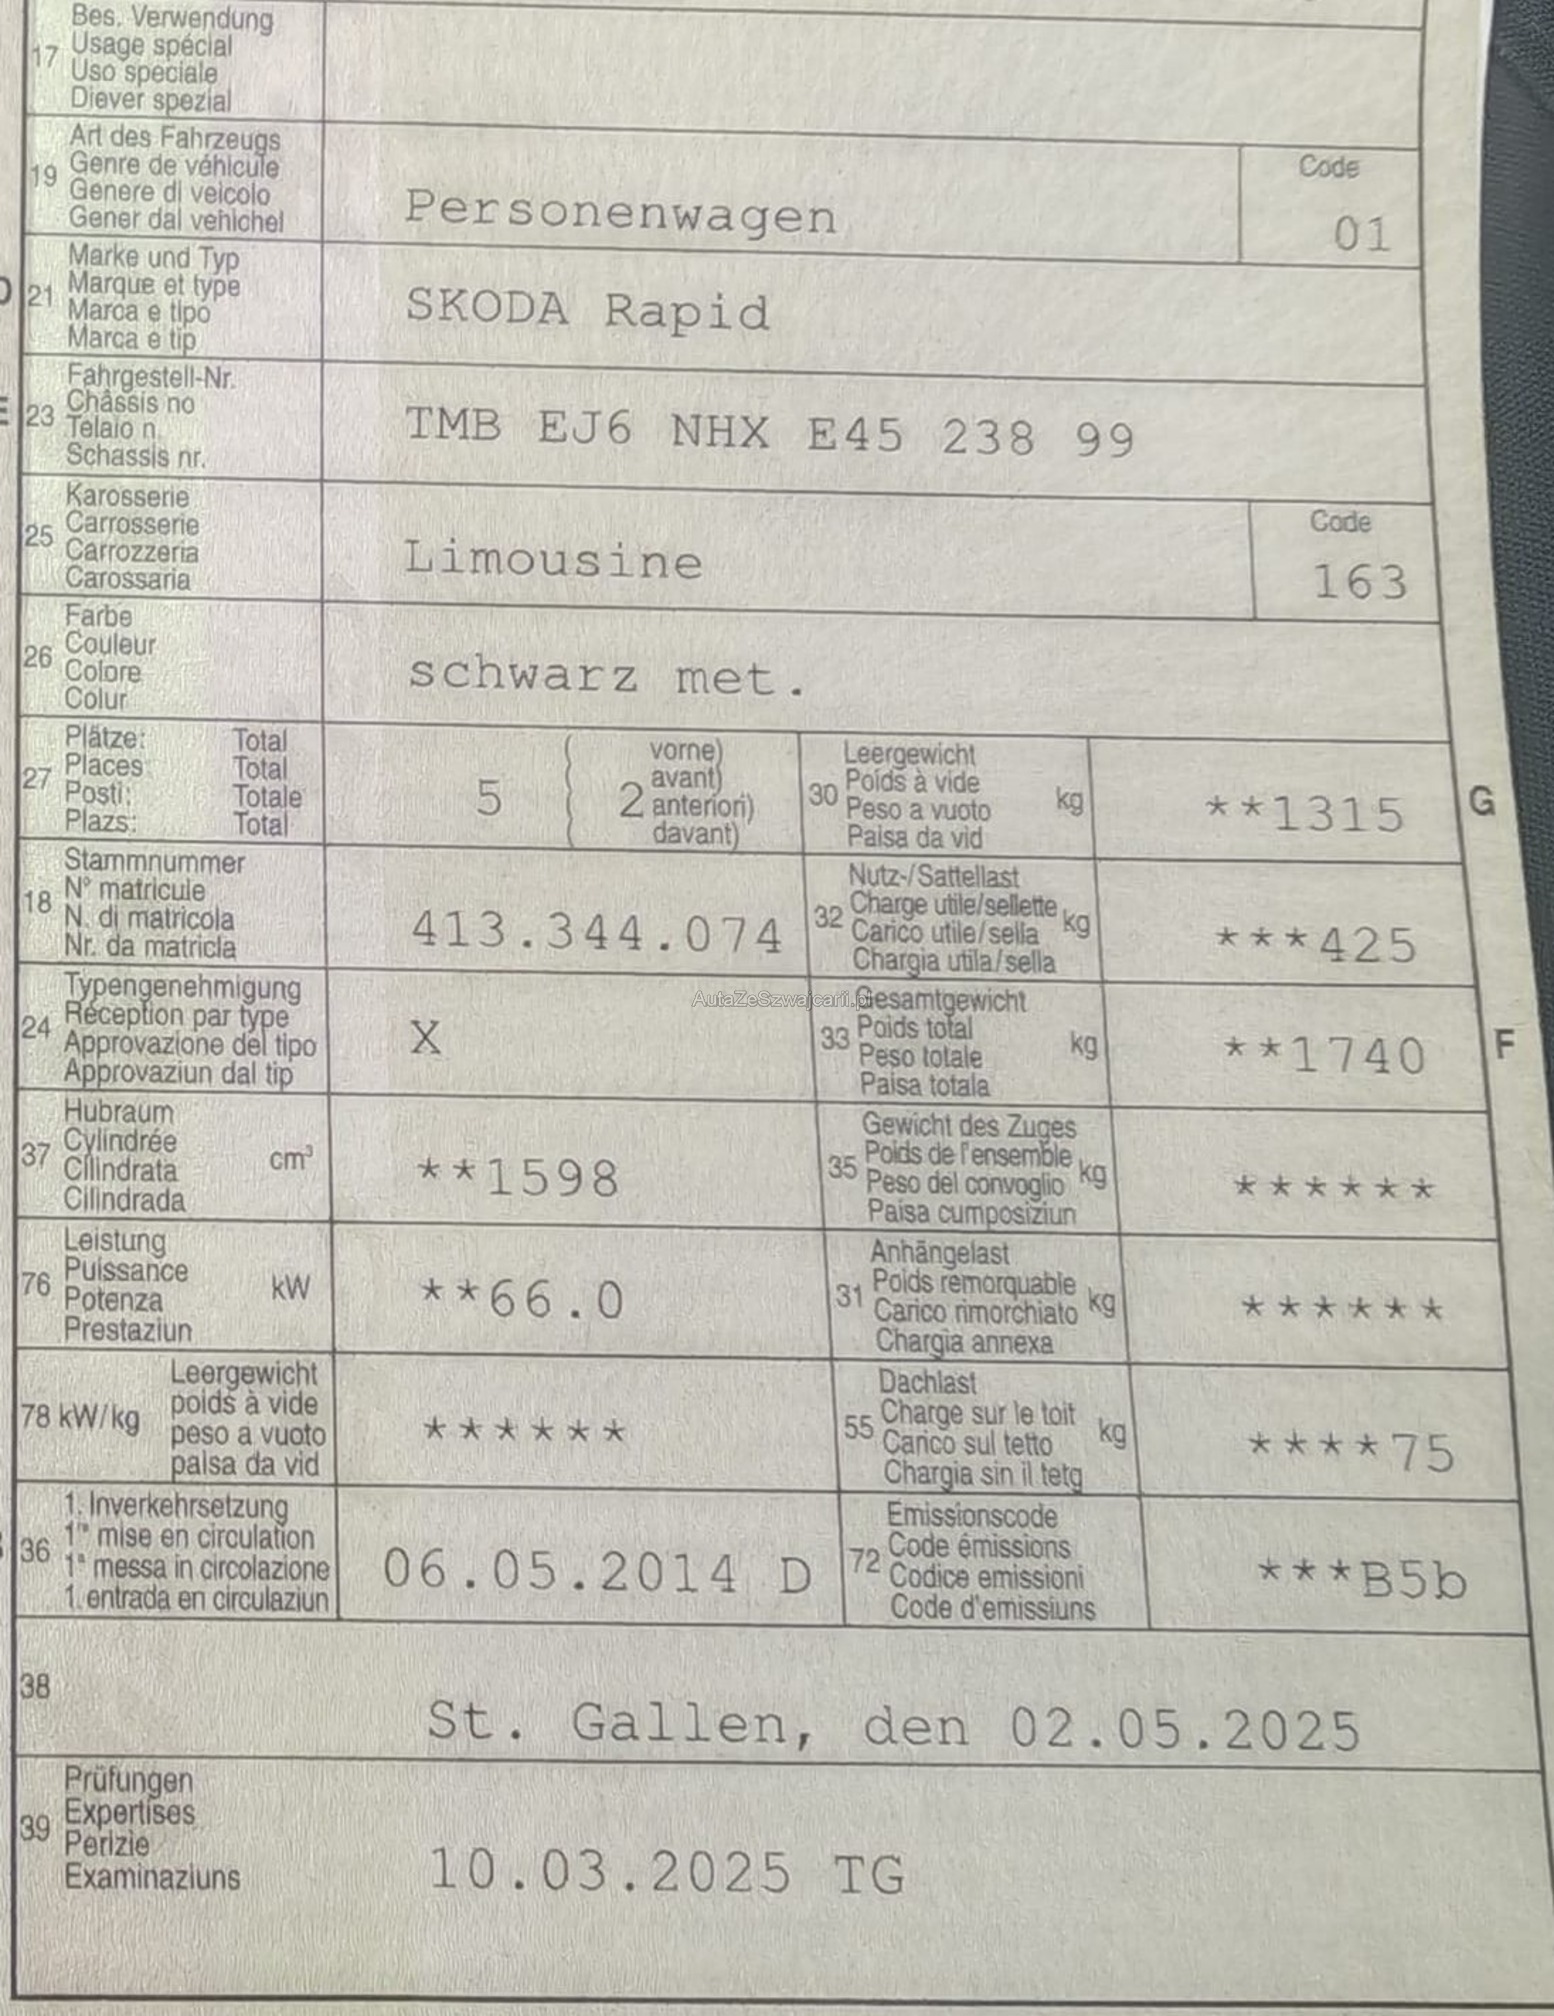 Bes. Verwendung
17 Usage spécial
Uso speciale
Diever spezial
Art des Fahrzeugs
19 Genre de véhicule
Genere di veicolo
Gener dal vehichel
Personenwagen
Code
01
Marke und Typ
21 Marque et type
Marca e tipo
Marca e tip
SKODA Rapid
Fahrgestell-Nr.
23 Châssis no
Telaio n.
Schassis nr.
TMB EJ6 NHX E45 238 99
Karosserie
25 Carrosserie
Carrozzeria
Carossaria
Limousine
Code
163
Farbe
26 Couleur
Colore
Colur
schwarz met.
Plätze: Total
27 Places Total
Posti: Totale
Plazs: Total
5
2
vorne)
avant)
anteriori)
davant)
Leergewicht
30 Poids à vide
Peso a vuoto kg
Paisa da vid
**1315
G
Stammnummer
18 N° matricule
N. di matricola
Nr. da matricla
413.344.074
Nutz-/Sattellast
32 Charge utile/sellette kg
Carico utile/sella
Chargia utila/sella
***425
AutaZeSzwajcarii.pl
Typengenehmigung
24 Réception par type
Approvazione del tipo
Approvaziun dal tip
X
Gesamtgewicht
33 Poids total
Peso totale kg
Paisa totala
**1740
F
Hubraum
37 Cylindrée
Cilindrata cm³
Cilindrada
**1598
Gewicht des Zuges
35 Poids de l'ensemble kg
Peso del convoglio
Paisa cumposiziun
******
Leistung
76 Puissance kW
Potenza
Prestaziun
**66.0
Anhängelast
31 Poids remorquable
Carico rimorchiato kg
Chargia annexa
******
Leergewicht
78 kW/kg poids à vide
peso a vuoto
paisa da vid
******
Dachlast
55 Charge sur le toit
Carico sul tetto kg
Chargia sin il tetg
****75
1. Inverkehrsetzung
36 1re mise en circulation
1a messa in circolazione
1. entrada en circulaziun
06.05.2014 D
Emissionscode
72 Code émissions
Codice emissioni
Code d'emissiuns
***B5b
38
St. Gallen, den 02.05.2025
Prüfungen
39 Expertises
Perizie
Examinaziuns
10.03.2025 TG